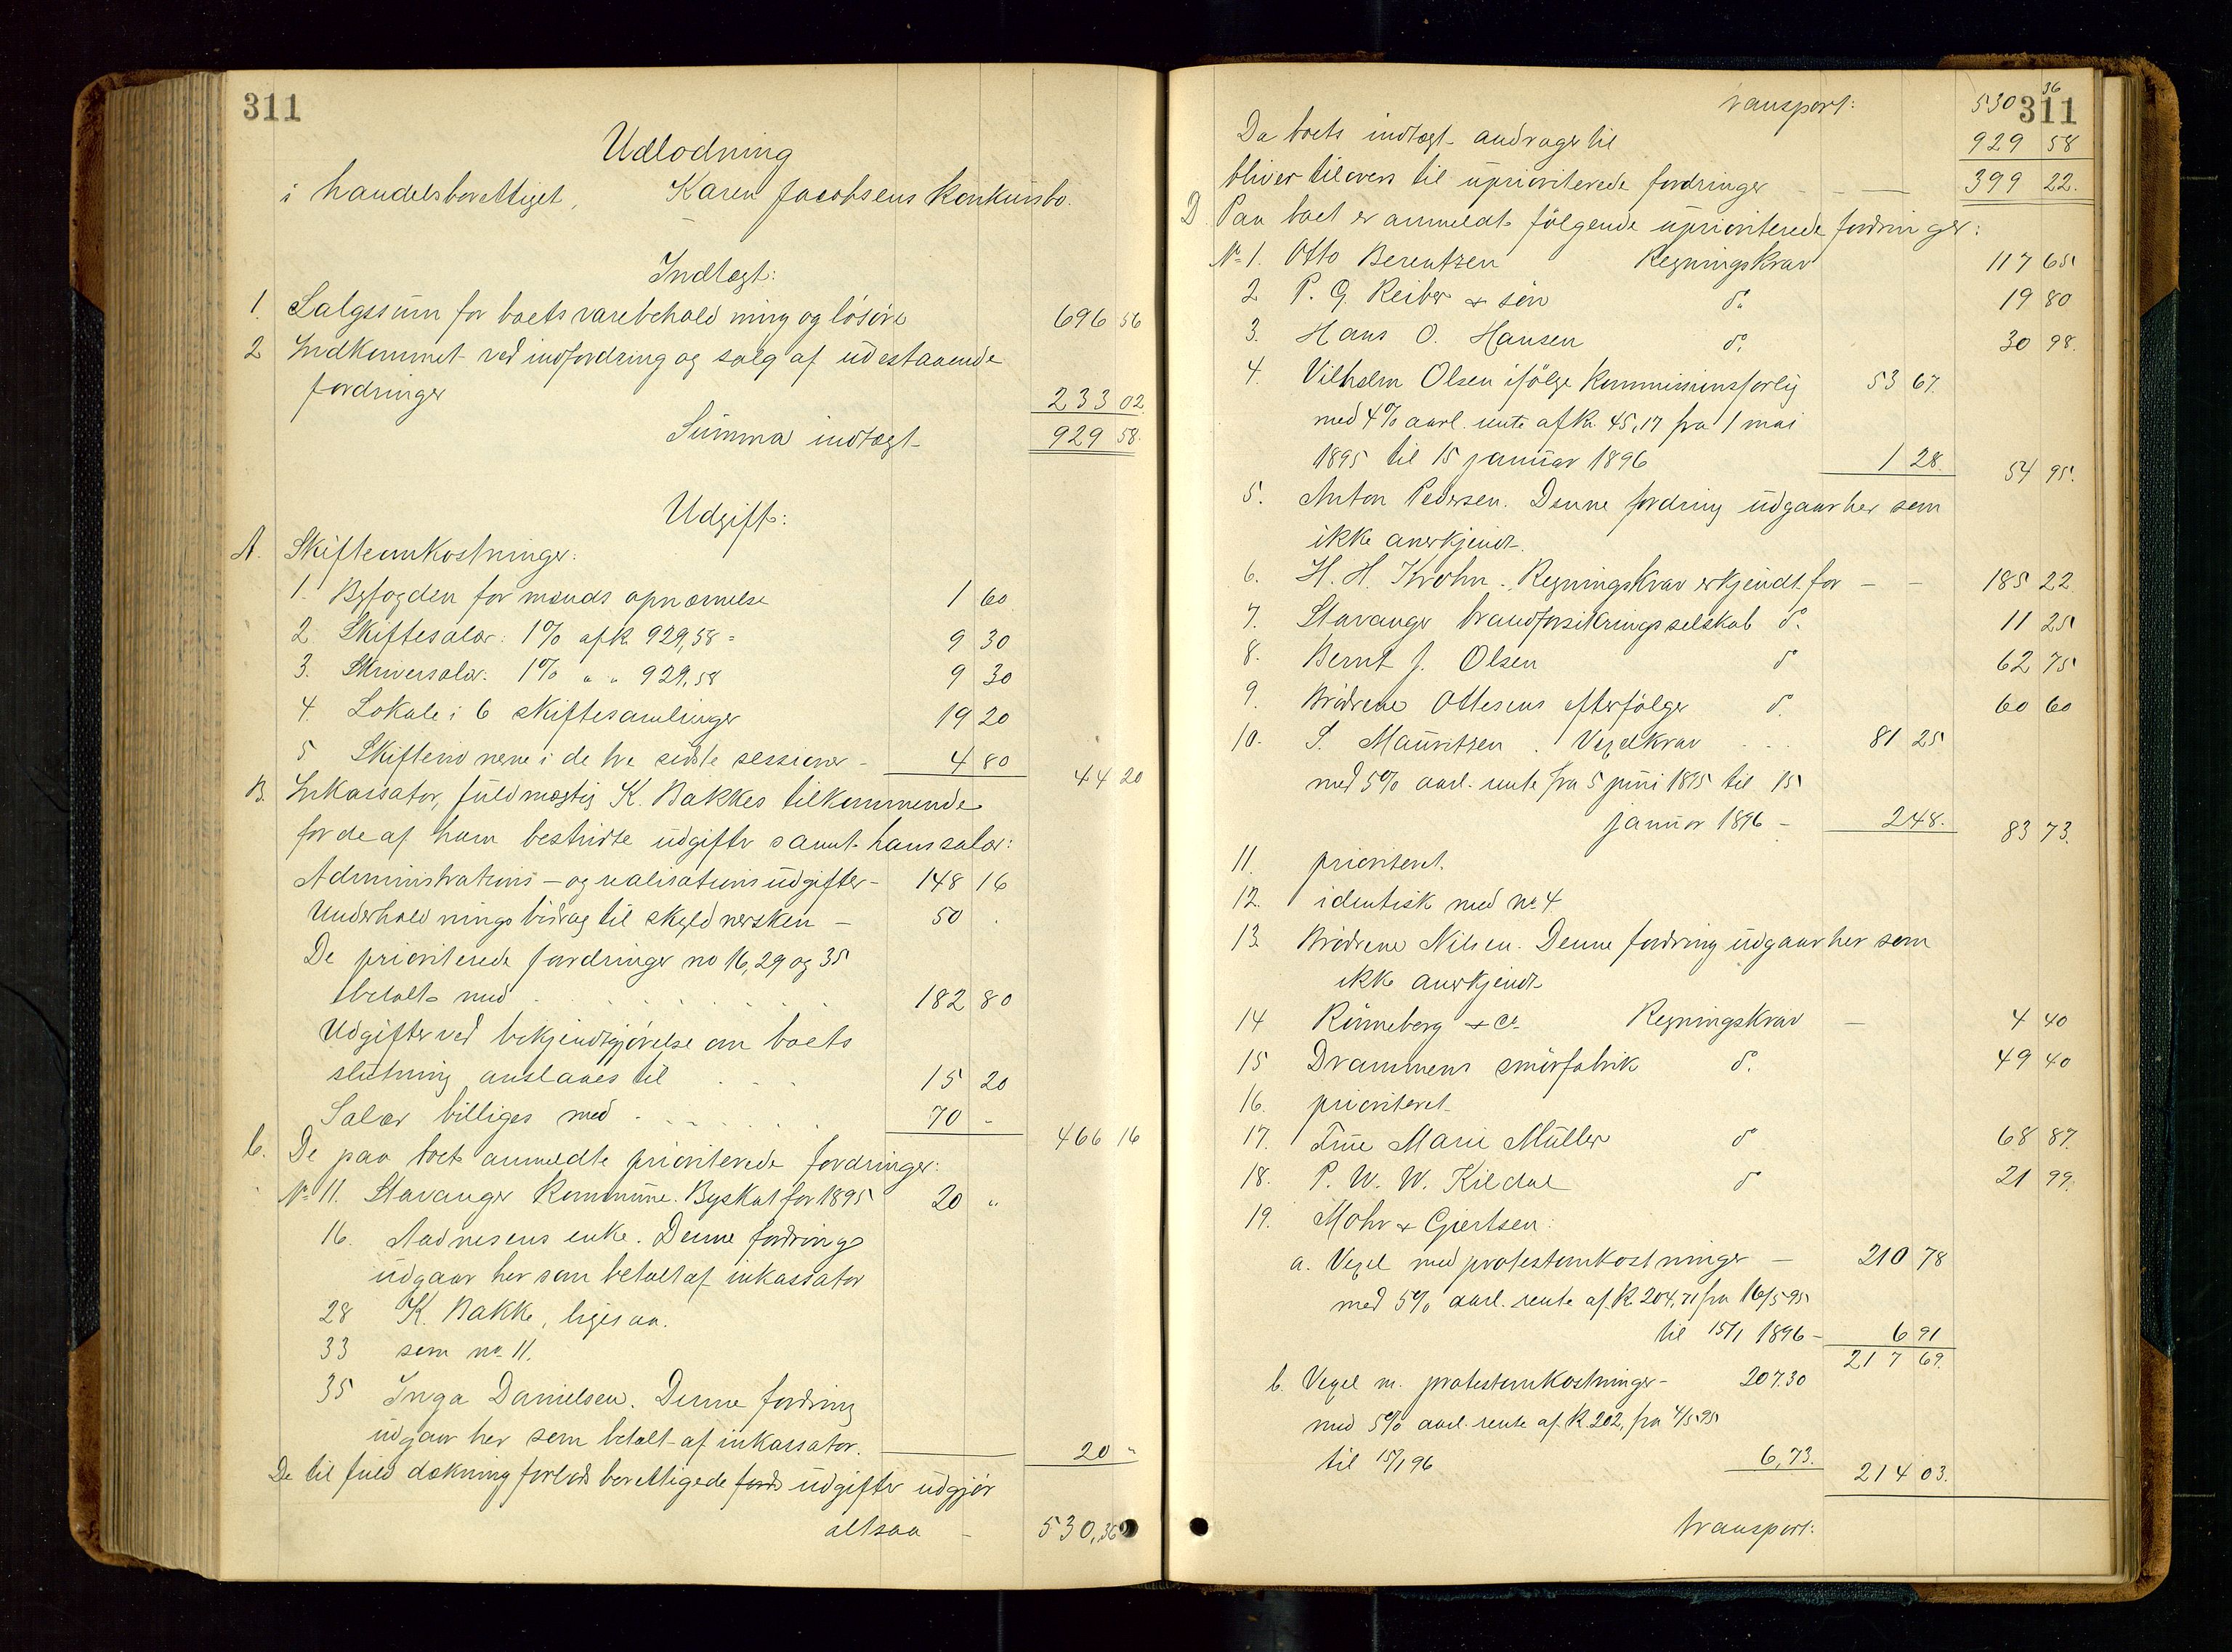 311
Udlodning
i handelsberettiget, Karen Jacobsens konkursbo.
Indtægt:
1. Salgssum for boets varebeholdning og løsøre 696 56
2 Indkommet ved indfordring og salg af udestaaende
fordringer 233 02.
Summa indtægt 929 58.
Udgift:
A. Skifteomkostninger:
1. Byfogden for mænds opnævnelse 1 60
2. Skiftesalær: 1% af k. 929,58 = 9 30
3. Skriversalær: 1% " " 929,58 9 30
4. Lokale i 6 skiftesamlinger 19 20
5 Skiftevidnerne i de tre sidste sessioner - 4 80 44 20
B. Inkassator, fuldmægtig K. Bakkes tilkommende
for de af ham bestridte udgifter samt hans salær:
Administrations- og realisationsudgifter - 148 16
Underholdningsbidrag til skyldnersken - 50 .
De prioriterede fordringer no 16, 29 og 35
betalt med 182 80
Udgifter ved bekjendtgjørelse om boets
slutning anslaaes til 15 20
Salær billiges med 70 - 466 16
C. De paa boet anmeldte prioriterede fordringer:
No 11. Stavanger kommune. Byskat for 1895 20 "
16. Aadnesens enke. Denne fordring
udgaar her som betalt af inkassator
28 K. Bakke, ligesaa.
33 som no 11.
35 Inga Danielsen. Denne fordring
udgaar her som betalt af inkassator. 20 "
De til fuld dækning forlods berettigede udgifter udgjør
altsaa - 530,36
transport: 530 36
311
Da boets indtægt andrager til 929 58
bliver tilovers til uprioriterede fordringer - - 399 22.
D. Paa boet er anmeldt følgende uprioriterede fordringer:
No 1. Otto Berentzen Regningskrav 117 65
2 P. G. Reiber & søn do 19 80
3. Hans O. Hansen do. 30 98.
4. Vilhelm Olsen ifølge kommissionsforlig 53 67.
med 4% aarl. rente af k. 45,17 fra 1 mai
1895 til 15 januar 1896 1 28. 54 95.
5. Anton Pedersen. Denne fordring udgaar her som
ikke anerkjendt.
6. H. H. Krohn. Regningskrav erkjendt for - - 185 22.
7. Stavanger brandforsikringsselskab do. 11 25
8. Bernt J. Olsen do 62 75
9. Brødrene Ottesens efterfølger do. 60 60
10. S. Mauritzen. Vexelkrav . . . 81 25
med 5% aarl. rente fra 5 juni 1895 til 15
januar 1896 - 2 48. 83 73.
11. prioriteret.
12. identisk med no 4.
13. Brødrene Nilsen. Denne fordring udgaar her som
ikke anerkjendt
14 Rønneberg & Co. Regningskrav - 4 40
15 Drammens smørfabrik do. 49 40
16. prioriteret
17. Frue Marie Müller do 68 87.
18. P. W. W. Kildal do 21 99.
19. Mohr & Gjertsen:
a. Vexel med protestomkostninger - 210 78
med 5% aarl. rente af k. 204,71 fra 16/5 95
til 15/1 1896 - 6 91
217 69.
b. Vexel m. protestomkostninger - 207.30
med 5% aarl. rente af k. 202, fra 4/5 95
til 15/1 96 6,73. 214 03.
transport: